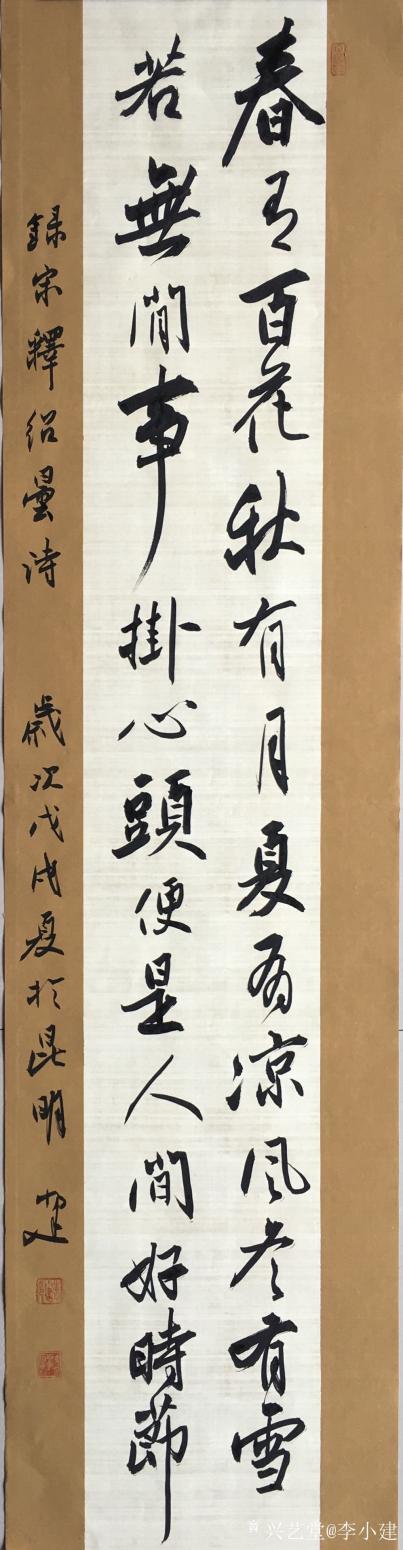 春有百花秋有月夏有凉風冬有雪
若無閒事掛心頭便是人間好時節
録宋釋紹曇诗 歲次戊戌夏於昆明 小建
兴艺堂@李小建